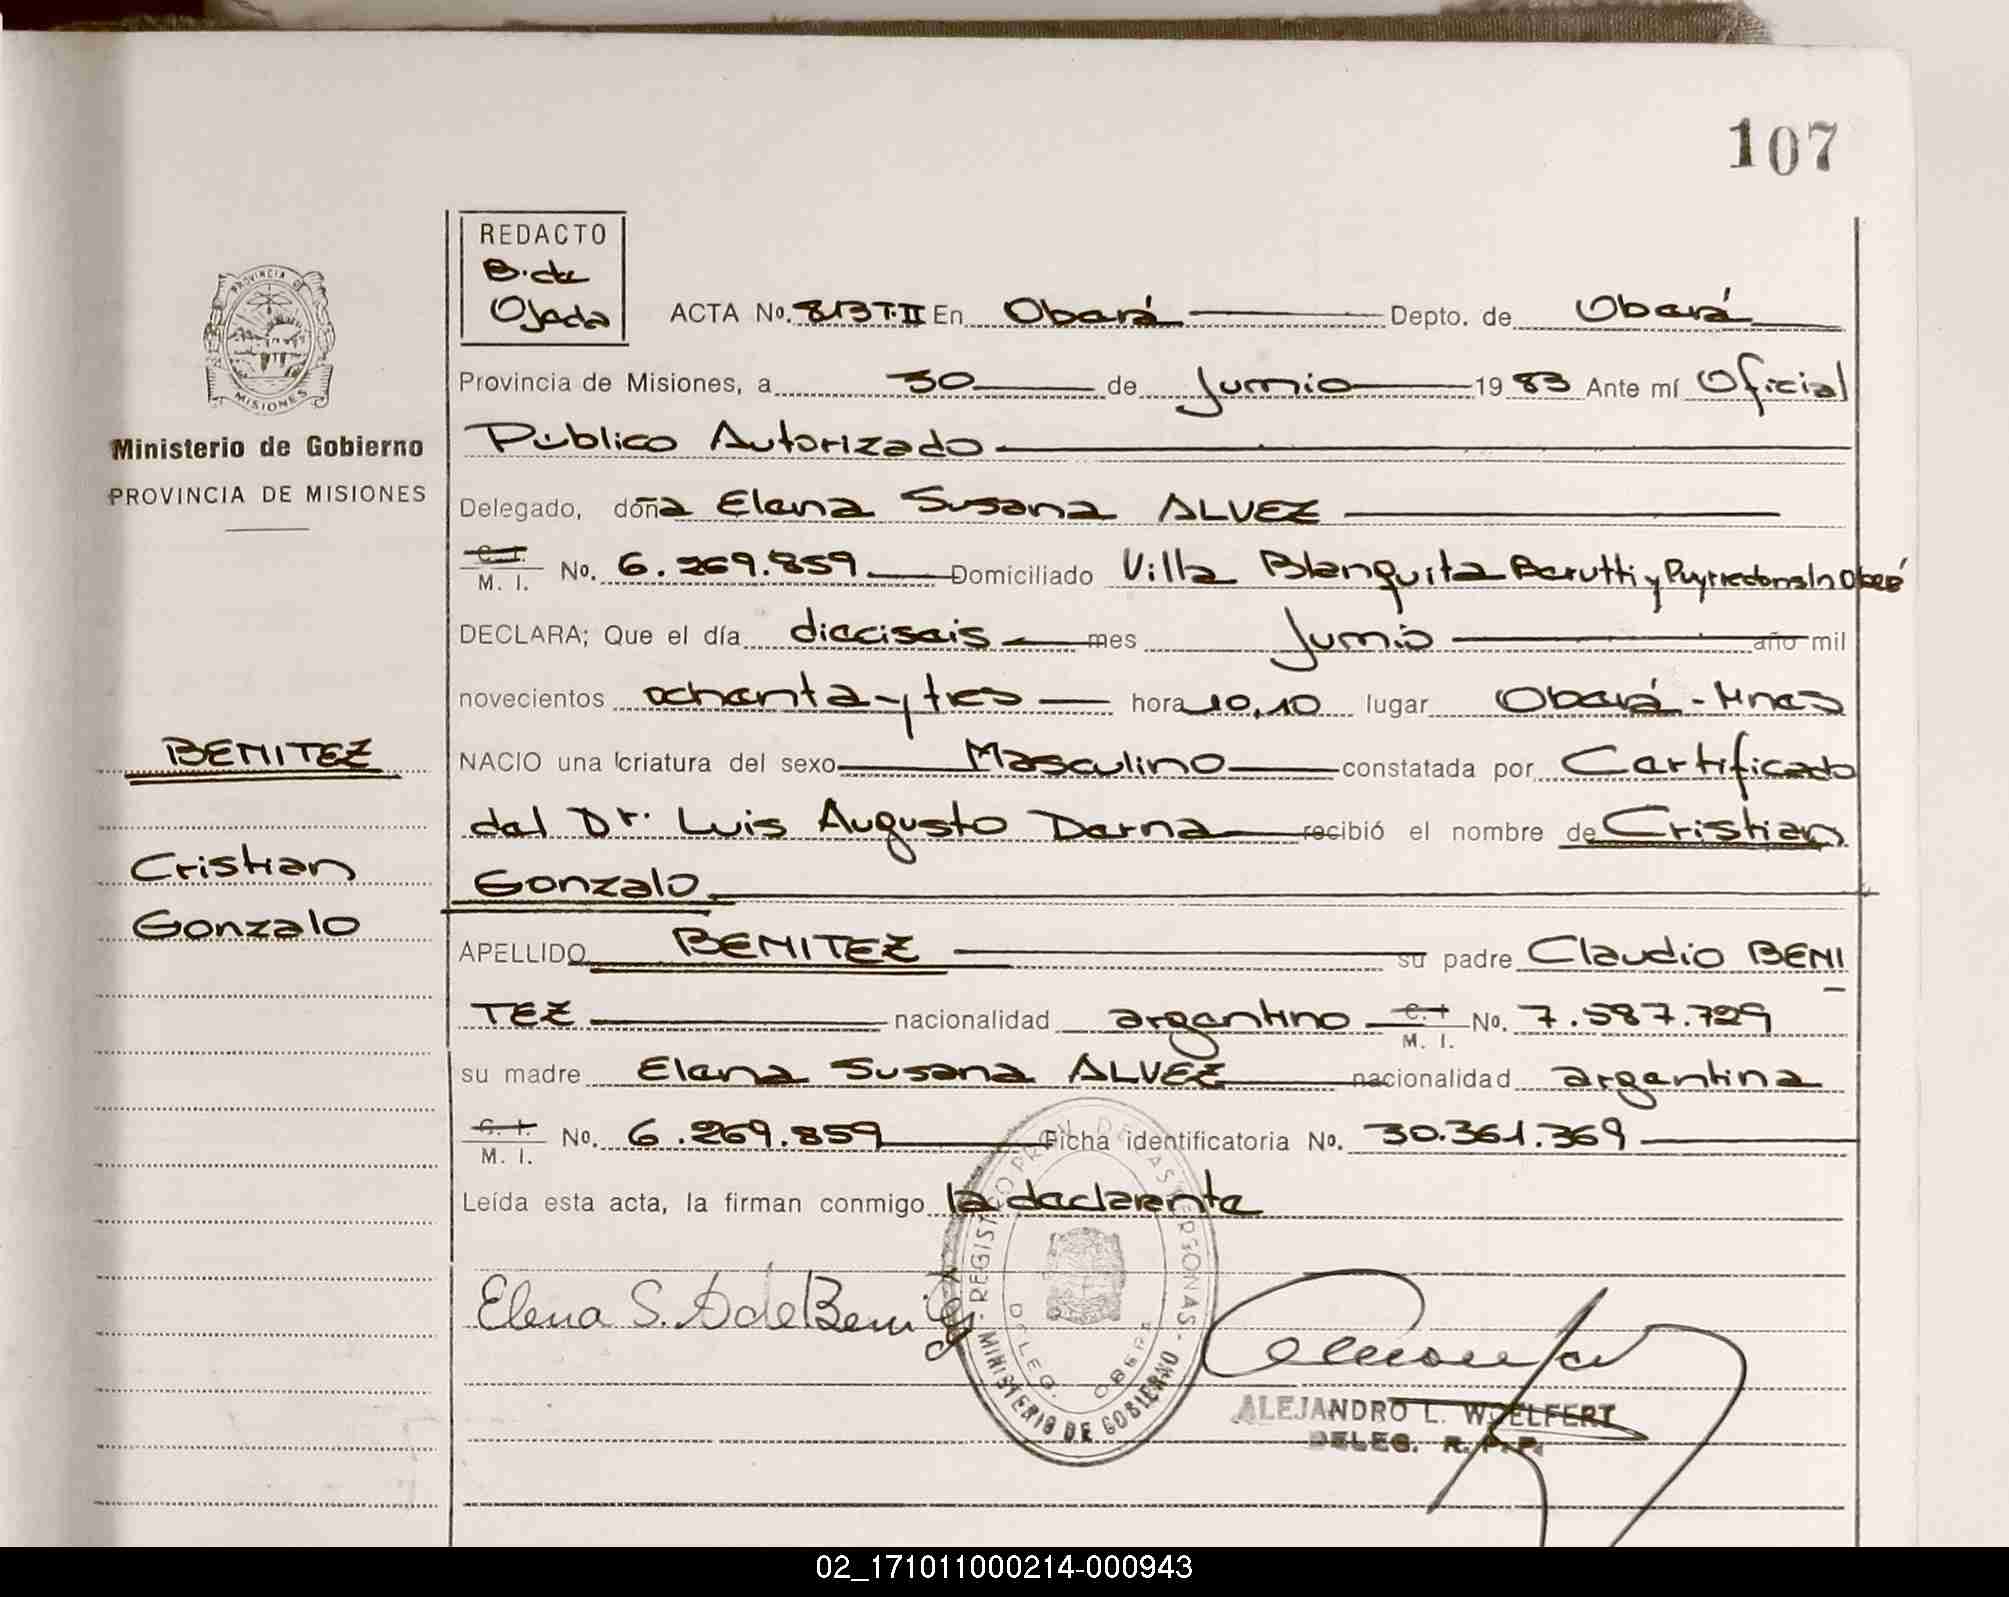 107
REDACTO
B. de
Ojeda
ACTA No. 813 T·II En Oberá Depto. de Oberá
Provincia de Misiones, a 30 de Junio 1983 Ante mí Oficial
Público Autorizado
Delegado, doña Elena Susana ALVEZ
C. I.
M. I. No. 6.269.859 Domiciliado Villa Blanquita Berutti y Puyrredon s/n Oberá
DECLARA; Que el día dieciseis mes Junio año mil
novecientos ochenta y tres hora 10,10 lugar Oberá - Mnes
NACIO una criatura del sexo Masculino constatada por Certificado
del Dr. Luis Augusto Derna recibió el nombre de Cristian
Gonzalo
APELLIDO BENITEZ su padre Claudio BENI
TEZ nacionalidad argentino C. I. M. I. No. 7.587.729
su madre Elena Susana ALVEZ nacionalidad argentina
C. I.
M. I. No. 6.269.859 Ficha identificatoria No. 30.361.369
Leída esta acta, la firman conmigo la declarente
Elena S. A de Benitez
ALEJANDRO L. WOELFERT
DELEG. R. P. P.
REGISTRO PROV. DE LAS PERSONAS
MINISTERIO DE GOBIERNO
DELEG. OBERA
PROVINCIA DE
MISIONES
Ministerio de Gobierno
PROVINCIA DE MISIONES
BENITEZ
Cristian
Gonzalo
02_171011000214-000943